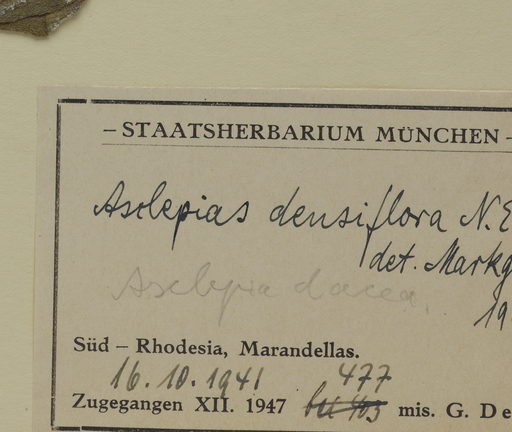 – STAATSHERBARIUM MÜNCHEN –
Asclepias densiflora N.E
det. Markg
19
Süd – Rhodesia, Marandellas.
16. 10. 1941 477
Zugegangen XII. 1947 mis. G. De